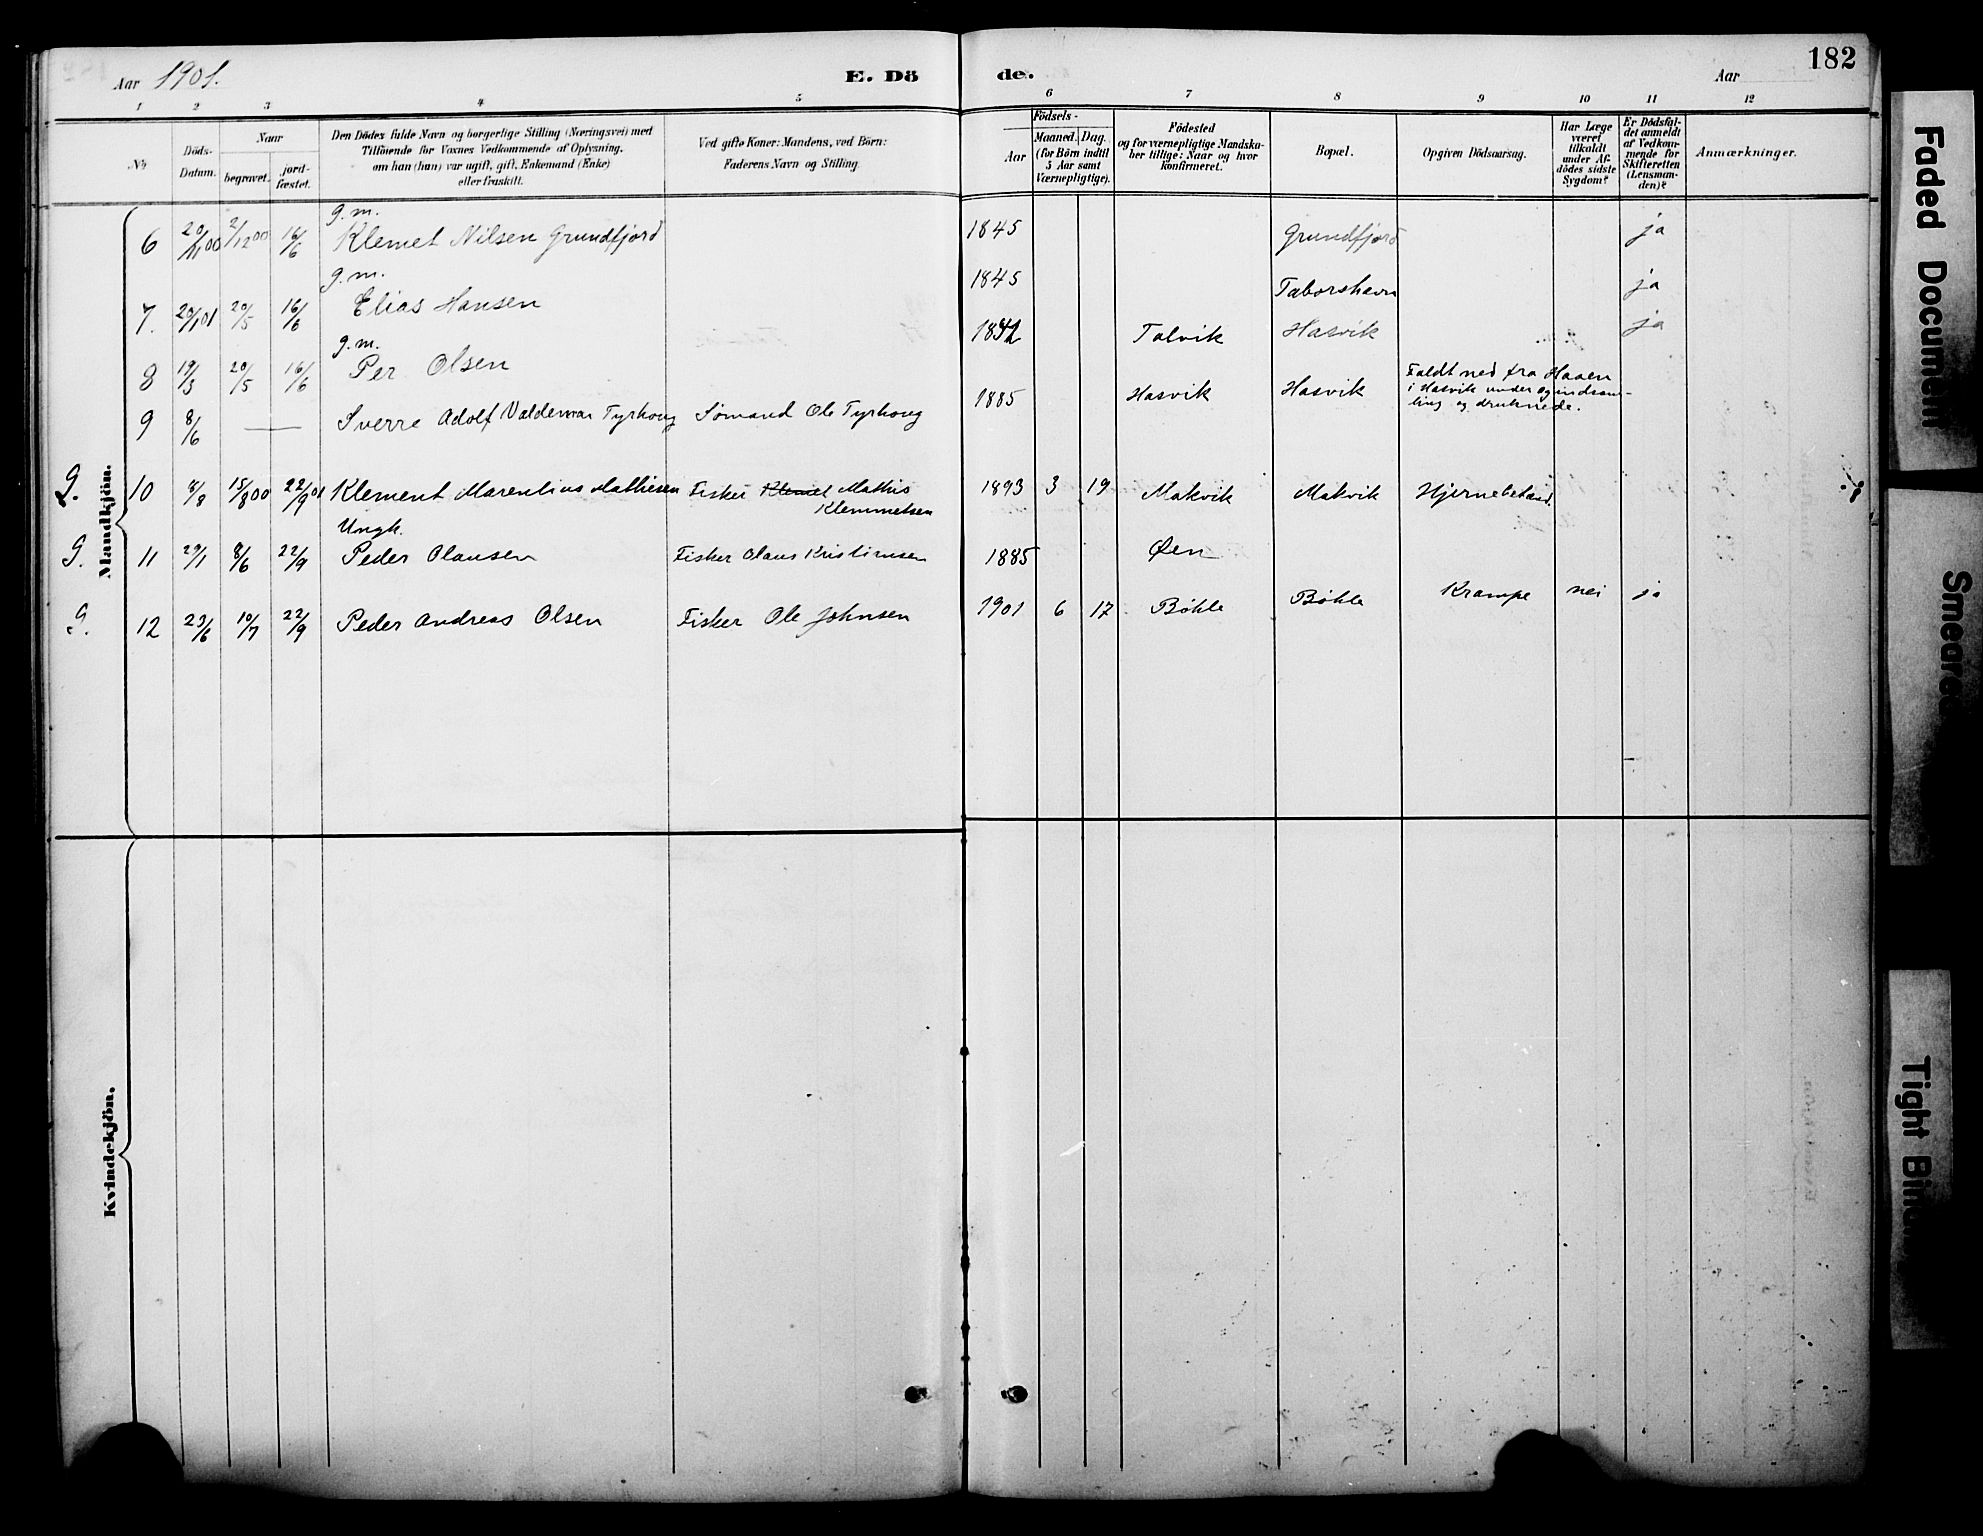 Aar 1901. E. Dö de. Aar 182
1 2 3 4 5 6 7 8 9 10 11 12
No
Döds-Datum.
Naar
begravet.
jord-fæstet.
Den Dödes fulde Navn og borgerlige Stilling (Næringsvei) med
Tilföiende for Voxnes Vedkommende af Oplysning,
om han (hun) var ugift, gift, Enkemand (Enke)
eller fraskilt.
Ved gifte Koner: Mandens, ved Börn:
Faderens Navn og Stilling.
Födsels-
Aar
Maaned. Dag.
(for Börn indtil
5 Aar samt
Værnepligtige).
Födested
og for værnepligtige Mandska-
ber tillige: Naar og hvor
konfirmeret.
Bopæl.
Opgiven Dödsaarsag.
Har Læge
været
tilkaldt
under Af-
dödes sidste
Sygdom?
Er Dödsfal-
det anmeldt
af Vedkom-
mende for
Skifteretten
(Lensman-
den)?
Anmærkninger.
Mandkjön.
g. m.
6 20/11 00 2/12 00 16/6 Klemet Nilsen Grundfjord 1845 Grundfjord ja
g. m.
7. 20/1 01 20/5 16/6 Elias Hansen 1845 Taborshavn ja
g. m.
8 19/3 20/5 16/6 Per Olsen Talvik Hasvik ja
9 8/6 — Sverre Adolf Valdemar Tyrhoug Sömand Ole Tyrhoug 1885 Hasvik Hasvik Faldt ned fra Haaen
i Hasvik under
og druknede.
10 8/8 15/8 00 22/9 01 Klement Marentius Mathisen Fisker Klemet Mathis
Klemmetsen
1893 3 19 Makvik Makvik Hjernebetænd.
Ungk.
G. 11 29/1 8/6 22/9 Peder Olausen Fisker Olaus Kristiansen 1885 Øen
G. 12 23/6 10/7 22/9 Peder Andreas Olsen Fisker Ole Johnsen 1901 6 17 Böhle Böhle Krampe nei ja
Kvindekjön.
Faded Document
Smeared
Tight Bin